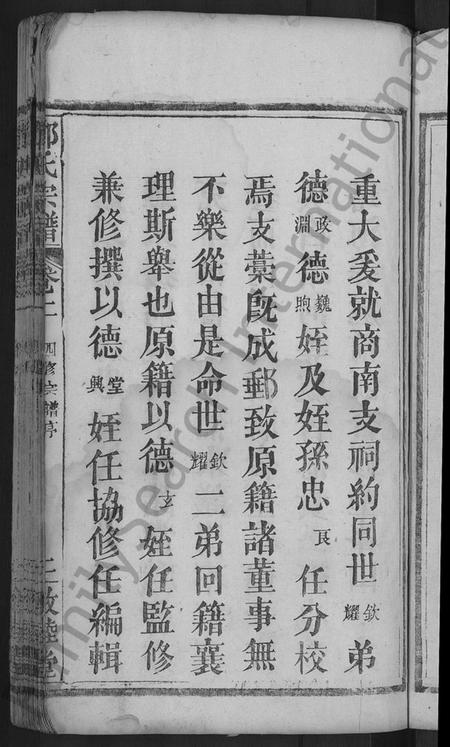 重大爰就商南支祠約同世欽耀弟
德政淵德巍煦姪及姪孫忠良任分校
焉支藁旣成郵致原籍諸董事無
不樂從由是命世欽耀二弟回籍襄
理斯舉也原籍以德玄姪任監修
兼修撰以德堂興姪任協修任編輯
氏宗譜 卷之二 四修宗譜序
FamilySearch International